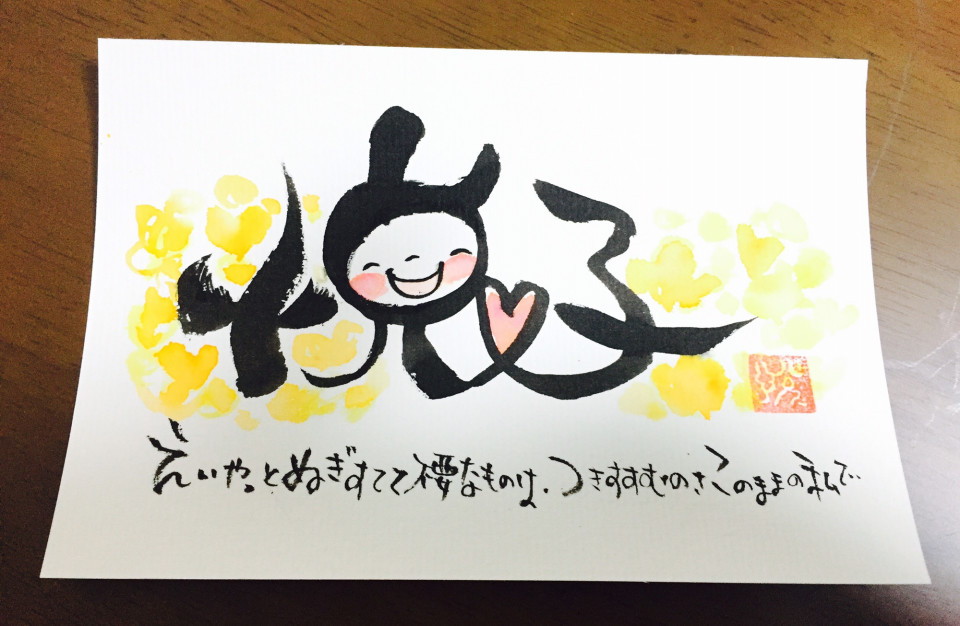 悦子
えいやっとぬぎすてて不要なものは、つきすすむのさこのままの私で